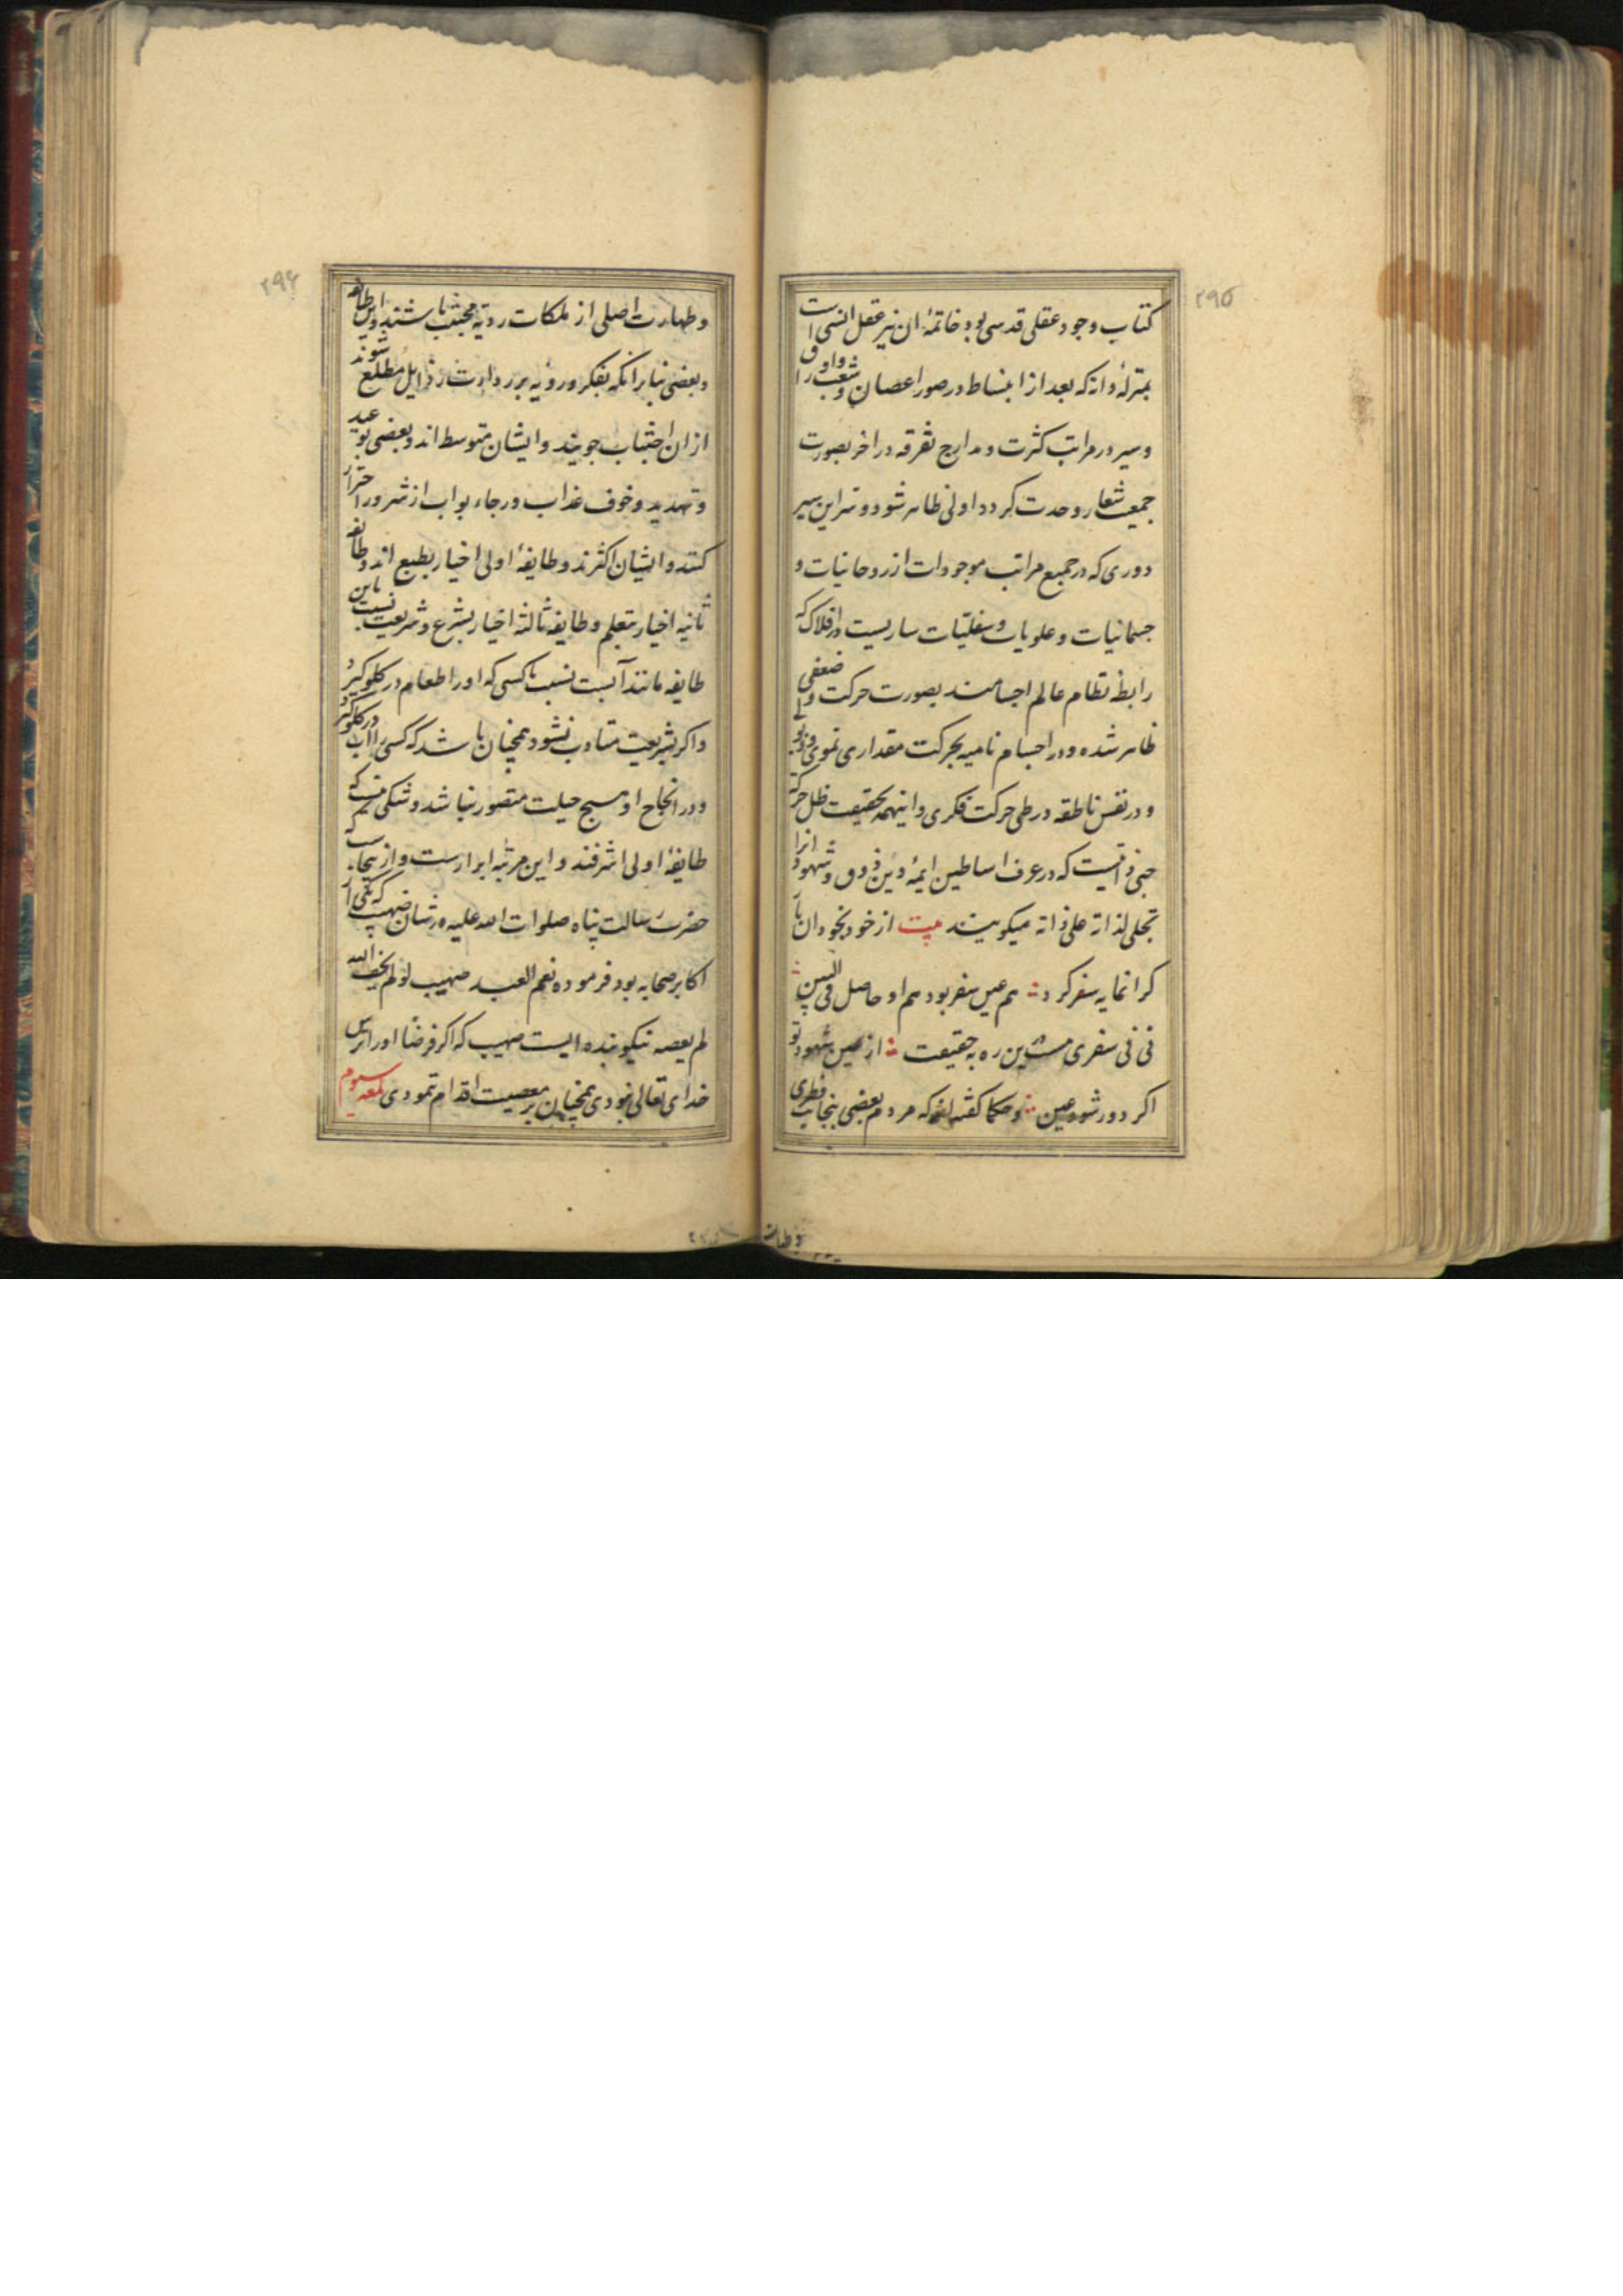 ۲۹۵
کتاب وجود عقلی قدسی بود خاتمهٔ ان نیز عقل انسی است
بمنزلهٔ دانه که بعد از انبساط در صور اغصان و شعب و اوراق
و سیر در مراتب کثرت و مدارج تفرقه در اخر بصورت
جمیعت شعار وحدت کردد اولی ظاهر شود و سر این سیر
دوری که در جمیع مراتب موجودات از روحانیات و
جسمانیات و علویات و سفلیات ساریست در افلاک که
رابطهٔ نظام عالم اجسامند بصورت حرکت وضعی
ظاهر شده و در اجسام نامیه بحرکت مقداری نموی و ذبولی
و در نفس ناطقه در طی حرکت فکری و اینهمه بحقیقت ظل حرکة
حبی ذاتیست که در عرف اساطین ایمهٔ دین ذوق و شهود انرا
تجلی لذاته علی ذاته میکویند بیت از خود بخود ان یار
کرانمایه سفر کرد هم عین سفر بود هم او حاصل فی البین
نی نی سفری نیست درین ره به حقیقت از عین شهود تو
اکر دور شود عین و حکما کفته اند که مردم بعضی بنجابت فطری
و طهارت
۲۹۶
و طهارت اصلی از ملکات ردیه مجتنب باشند و این طایفه
و بعضی بنا بر انکه بفکر و رویه بر رداءت رذایل مطلع شوند
از ان اجتناب جویند و ایشان متوسط اند و بعضی بوعید
و تهدید و خوف عذاب و رجاء ثواب از شرور احتراز
کنند و ایشان اکثرند و طایفهٔ اولی اخیار بطبع اند و طایفه
ثانیه اخیار بتعلم و طایفه ثالثه اخیار بشرع و شریعت نسبت باین
طایفه مانند آبست نسبت با کسی که او را طعام در کلو کیرد
و اکر بشریعت متادب نشود همچنان باشد که کسی را آب در کلو کیرد
و در انجاح او هیچ حیلت متصور نباشد و شکی نیست که
طایفهٔ اولی اشرفند و این مرتبه ابرارست و از ینجاست که
حضرت رسالت پناه صلوات الله علیه در شان صهیب که یکی از
اکابر صحابه بود فرموده نعم العبد صهیب لو لم یخف الله
لم یعصه نیکو بنده ایست صهیب که اکر فرضا او را ترس
خدای تعالی نبودی همچنان بر معصیت اقدام ننمودی لمعه سیوم